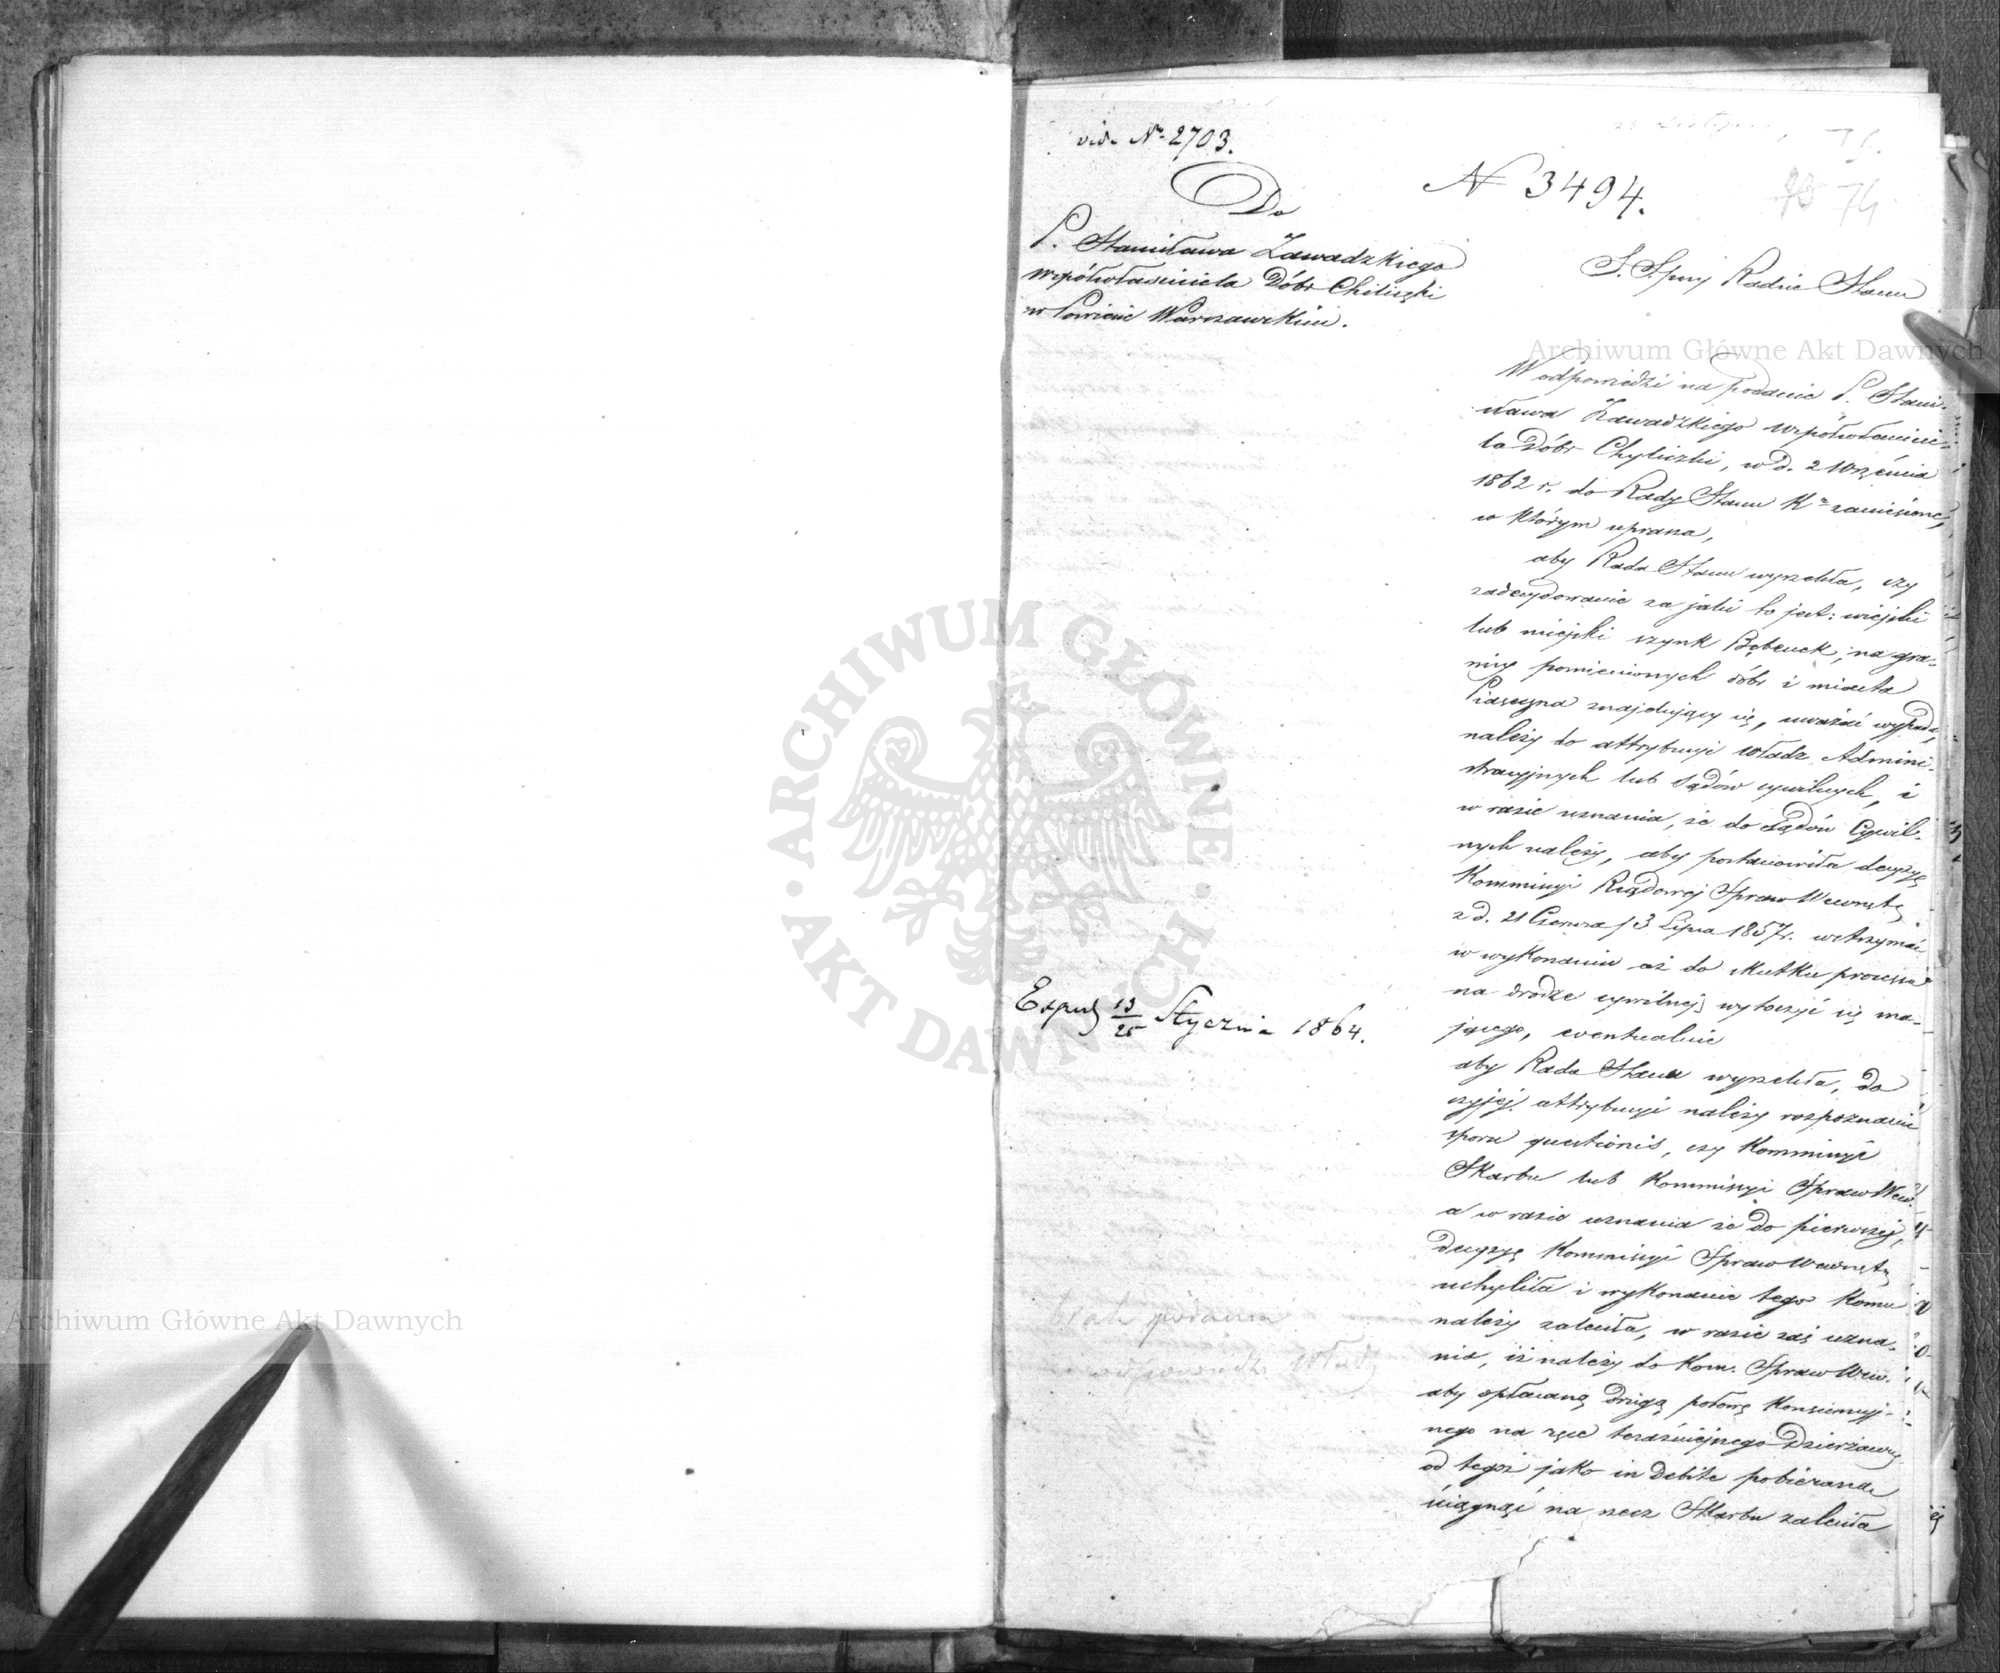 vid. Nr. 2703.
Do
P. Stanisława Zawadzkiego
współwłaściciela Dóbr Chiliczki
w Powiecie Warszawskim.
N 3494.
74
Radzie Stanu
W odpowiedzi na podanie P. Stani-
sława Zawadzkiego współwłaścicie-
la Dóbr Chyliczki, w d. 2 Września
1862 r. do Rady Stanu zaniesione,
w którym uprasza,
aby Rada Stanu wyrzekła, czy
zadecydowanie za jaki to jest: wiejski
lub miejski szynk Bębenek, na gra-
nicy pomienionych dóbr i miasta
Piaseczna znajdujący się, uważać wypada,
należy do attrybucyi Władz Admini-
stracyjnych lub Sądów cywilnych, i
w razie uznania, że do Sądów Cywil-
nych należy, aby postanowiła decyzyę
Kommissyi Rządowej Spraw Wewnętz
z d. 21 Czerwca / 3 Lipca 1857 r. wstrzymać
w wykonaniu aż do skutku processu
na drodze cywilnej wytoczyć się ma-
jącego, eventualnie
aby Rada Stanu wyrzekła, do
czyjej attrybucyi należy rozpoznanie
sporu questionis, czy Kommissyi
Skarbu lub Kommissyi Spraw Wew.
a w razie uznania że do pierwszej,
decyzyę Kommissyi Spraw Wewnętz
uchyliła i wykonanie tego komu
należy zaleciła, w razie zaś uzna-
nia, iż należy do Kom. Spraw Wew.
aby opłacaną drugą połowę Konsensyj-
nego na ręce teraźniejszego Dzierżawcy
od tegoż jako in debite pobieraną
ściągnąć na rzecz Skarbu zaleciła
Exped 13/25 Stycznia 1864.
brak podania
odpowiedzi Władz
Archiwum Główne Akt Dawnych
Archiwum Główne Akt Dawnych
ARCHIWUM GŁÓWNE AKT DAWNYCH